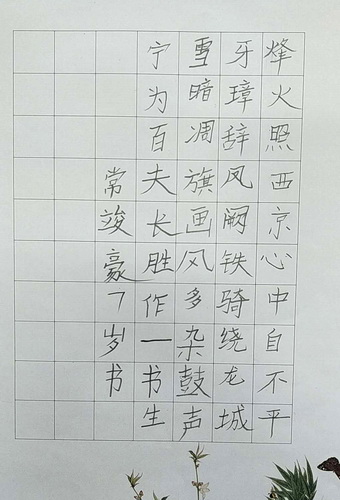 烽火照西京心中自不平
牙璋辞凤阙铁骑绕龙城
雪暗凋旗画风多杂鼓声
宁为百夫长胜作一书生
常竣豪7岁书